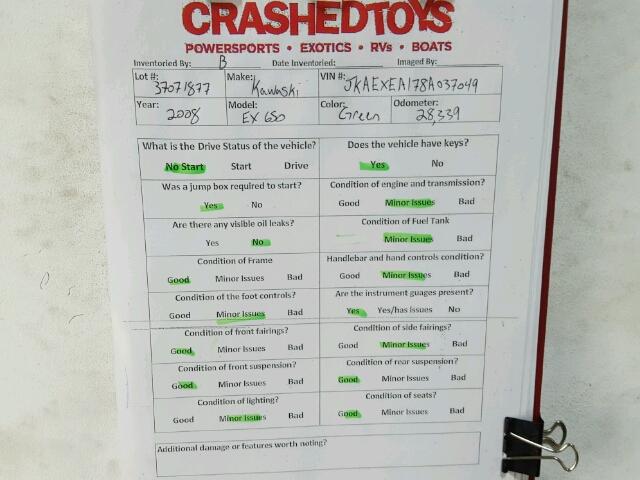 CRASHEDTOYS
POWERSPORTS • EXOTICS • RVs • BOATS
Inventoried By: B Date Inventoried: Imaged By:
Lot #: 37071877 Make: Kawaski VIN #: JKAEXEA178A037049
Year: 2008 Model: EX 650 Color: Green Odometer: 28,339
What is the Drive Status of the vehicle? Does the vehicle have keys?
No Start Start Drive Yes No
Was a jump box required to start? Condition of engine and transmission?
Yes No Good Minor Issues Bad
Are there any visible oil leaks? Condition of Fuel Tank
Yes No Minor Issues Bad
Condition of Frame Handlebar and hand controls condition?
Good Minor Issues Bad Good Minor Issues Bad
Condition of the foot controls? Are the instrument guages present?
Good Minor Issues Bad Yes Yes/has issues No
Condition of front fairings? Condition of side fairings?
Good Minor Issues Bad Good Minor Issues Bad
Condition of front suspension? Condition of rear suspension?
Good Minor Issues Bad Good Minor Issues Bad
Condition of lighting? Condition of seats?
Good Minor Issues Bad Good Minor Issues Bad
Additional damage or features worth noting?